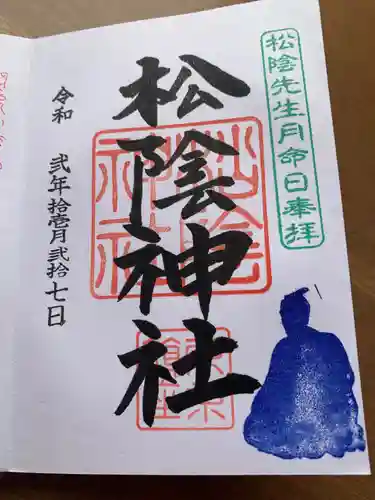 松陰先生月命日奉拝
松陰神社
松陰神社
令和 弐年拾壱月弐拾七日